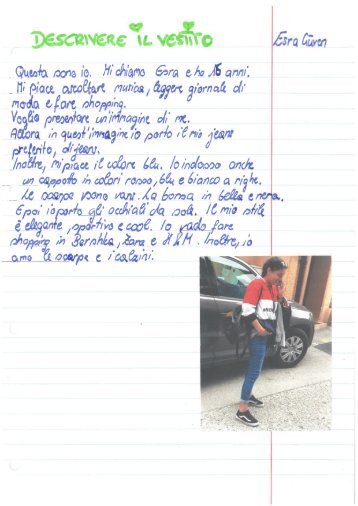 DESCRIVERE IL VESTITO
Esra Güven
Questa sono io. Mi chiamo Esra e ho 16 anni.
Mi piace ascoltare musica, leggere giornale di
moda e fare shopping.
Voglio presentare un'immagine di me.
Allora in quest'immagine io porto il mio jeans
preferito, di jeans.
Inoltre, mi piace il colore blu. Io indosso anche
un cappotto in colori rosso, blu e bianco a righe.
Le scarpe sono vans. La borsa in bella e nera.
E poi io porto gli occhiali da sole. Il mio stile
è elegante, sportivo e cool. Io vado fare
shopping in Bershka, Zara e H&M. Inoltre, io
amo le scarpe e i calzini.